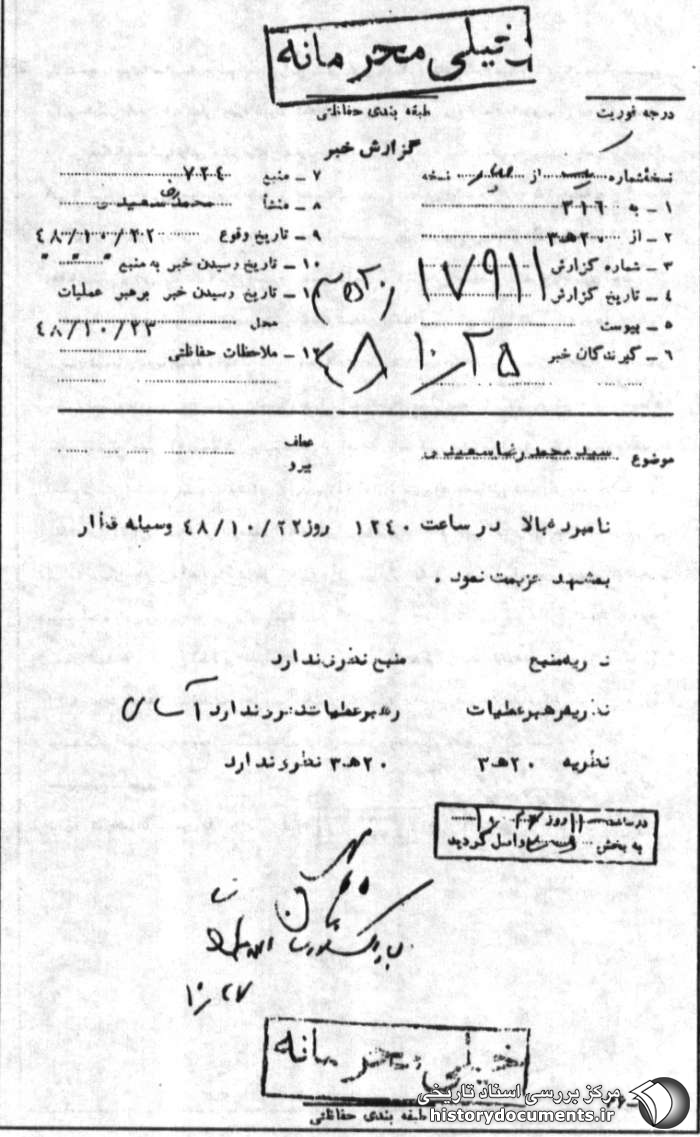 خیلی محرمانه
طبقه بندی حفاظتی
درجه فوریت
گزارش خبر
نسخهشماره یک از نسخه
۷ - منبع ۷۲۴
۱ - به ۳۱۶
۸ - منشأ محمدرضا سعیدی
۲ - از ۲۰هـ۳
۹ - تاریخ وقوع ۴۸/۱۰/۲۲
۳ - شماره گزارش ۱۷۹۱۱
۱۰ - تاریخ رسیدن خبر به منبع " " "
۴ - تاریخ گزارش ۴۸/۱۰/۲۵
۱۱ - تاریخ رسیدن خبر برهبر عملیات
۵ - پیوست
محل ۴۸/۱۰/۲۳
۶ - گیرندگان خبر
۱۲ - ملاحظات حفاظتی
موضوع سید محمد رضا سعیدی
عطف
پیرو
نامبرده بالا در ساعت ۱۲۴۰ روز ۴۸/۱۰/۲۲ وسیله قطار
بمشهد عزیمت نمود .
نظریه منبع منبع نظری ندارد
نظریه رهبر عملیات رهبر عملیات نظری ندارد
نظریه ۲۰هـ۳ ۲۰هـ۳ نظری ندارد
در ساعت ۱۱ روز
به بخش واصل گردید
۱۰/۲۷
خیلی محرمانه
طبقه بندی حفاظتی
مرکز بررسی اسناد تاریخی
historydocuments.ir